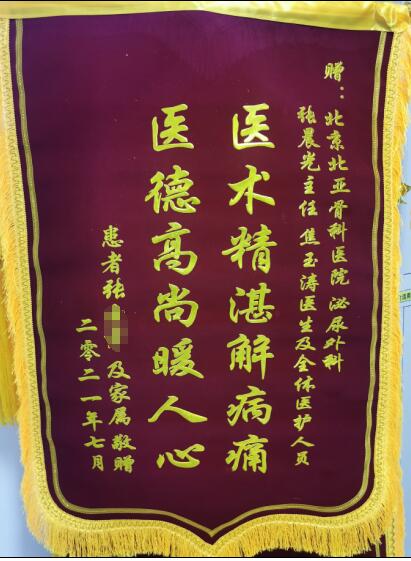 赠：北京北亚骨科医院泌尿外科
张晨光主任焦玉涛医生及全体医护人员
医术精湛解病痛
医德高尚暖人心
患者张
及家属敬赠
二零二一年七月